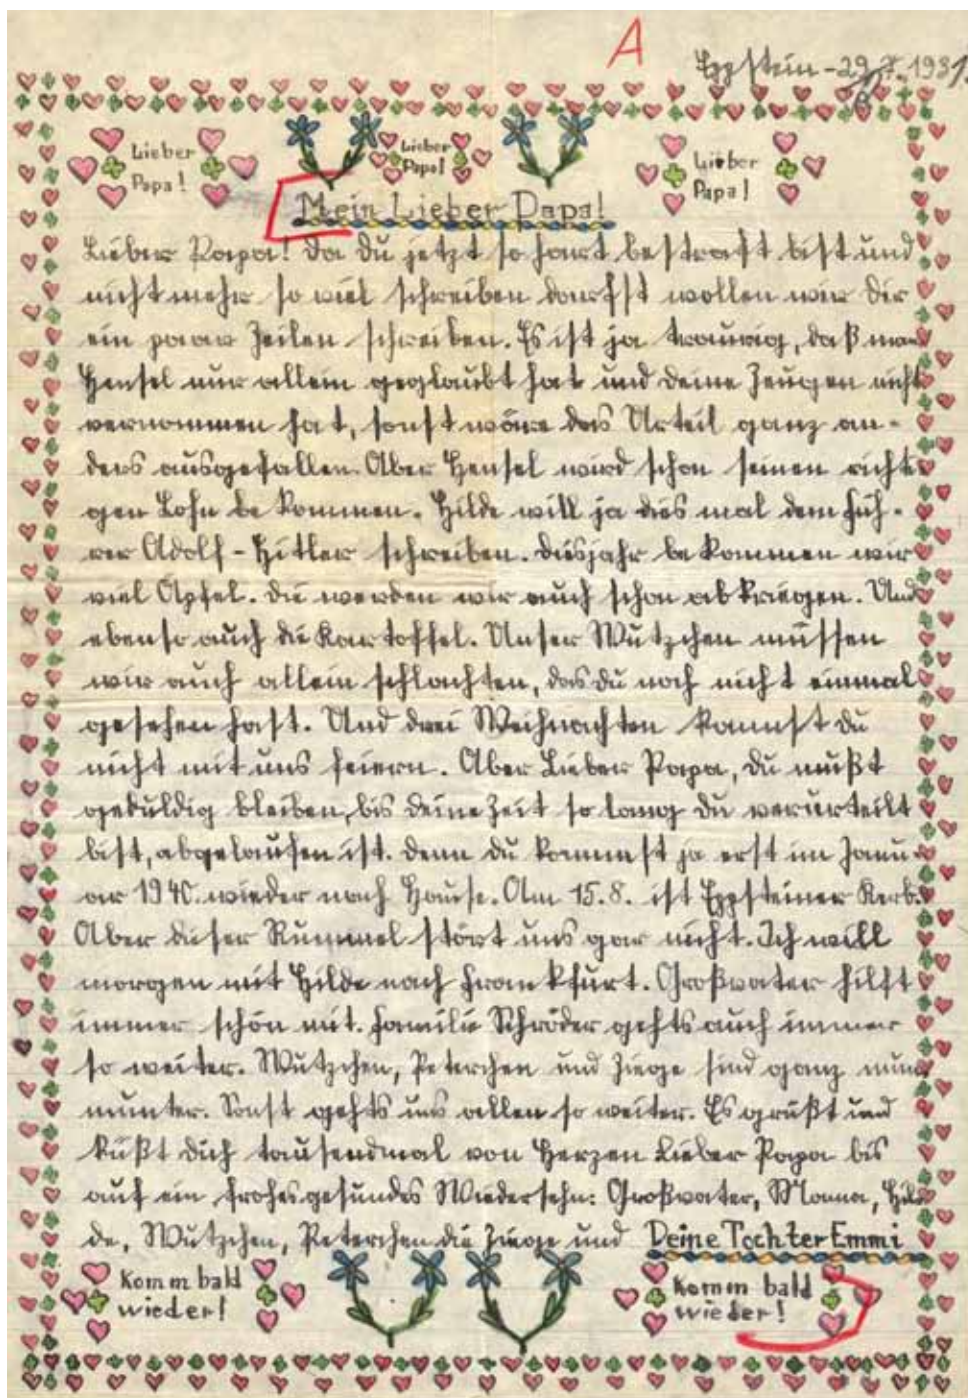 A
Eppstein - 29. 1937.
Lieber Papa!
Lieber Papa!
Lieber Papa!
Mein Lieber Papa!
Lieber Papa! Da du jetzt so hart bestraft bist und
nicht mehr so viel schreiben darfst wollen wir Dir
ein paar Zeilen schreiben. Es ist ja traurig, daß man
Hensel nur allein geglaubt hat und deine Zeugen nicht
vernommen hat, sonst wäre das Urteil ganz an-
ders ausgefallen. Aber Hensel wird schon seinen richti-
gen Lohn bekommen. Hilde will ja dies mal dem Füh-
rer Adolf-Hitler schreiben. Diesjahr bekommen wir
viel Apfel. Die werden wir auch schon abkriegen. Und
ebenso auch die Kartoffel. Unser Wutzchen müssen
wir auch allein schlachten, das du noch nicht einmal
gesehen hast. Und drei Weihnachten kannst du
nicht mit uns feiern. Aber Lieber Papa, du mußt
geduldig bleiben, bis deine Zeit so lang du verurteilt
bist, abgelaufen ist. Denn du kommst ja erst im Janu-
ar 1940. wieder nach Hause. Am 15.8. ist Eppsteiner Kerb.
Aber dieser Rummel stört uns gar nicht. Ich will
morgen mit Hilde nach Frankfurt. Großvater hilft
immer schön mit. Familie Schröder gehts auch immer
so weiter. Wutzchen, Peterchen und Ziege sind ganz
munter. Sonst gehts uns allen so weiter. Es grüßt und
küßt Dich tausendmal von Herzen Lieber Papa bis
auf ein frohes gesundes Wiedersehn: Großvater, Mama, Hil-
de, Wutzchen, Peterchen die Ziege und Deine Tochter Emmi
Komm bald wieder!
Komm bald wieder!